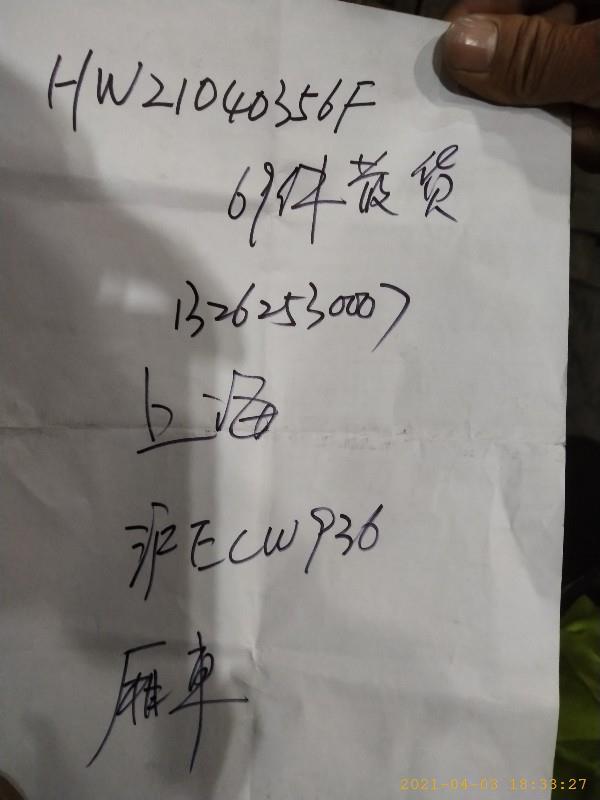 HW21040356F
69件散货
13262530007
上海
沪ECW936
厢车
2021-04-03 18:33:27